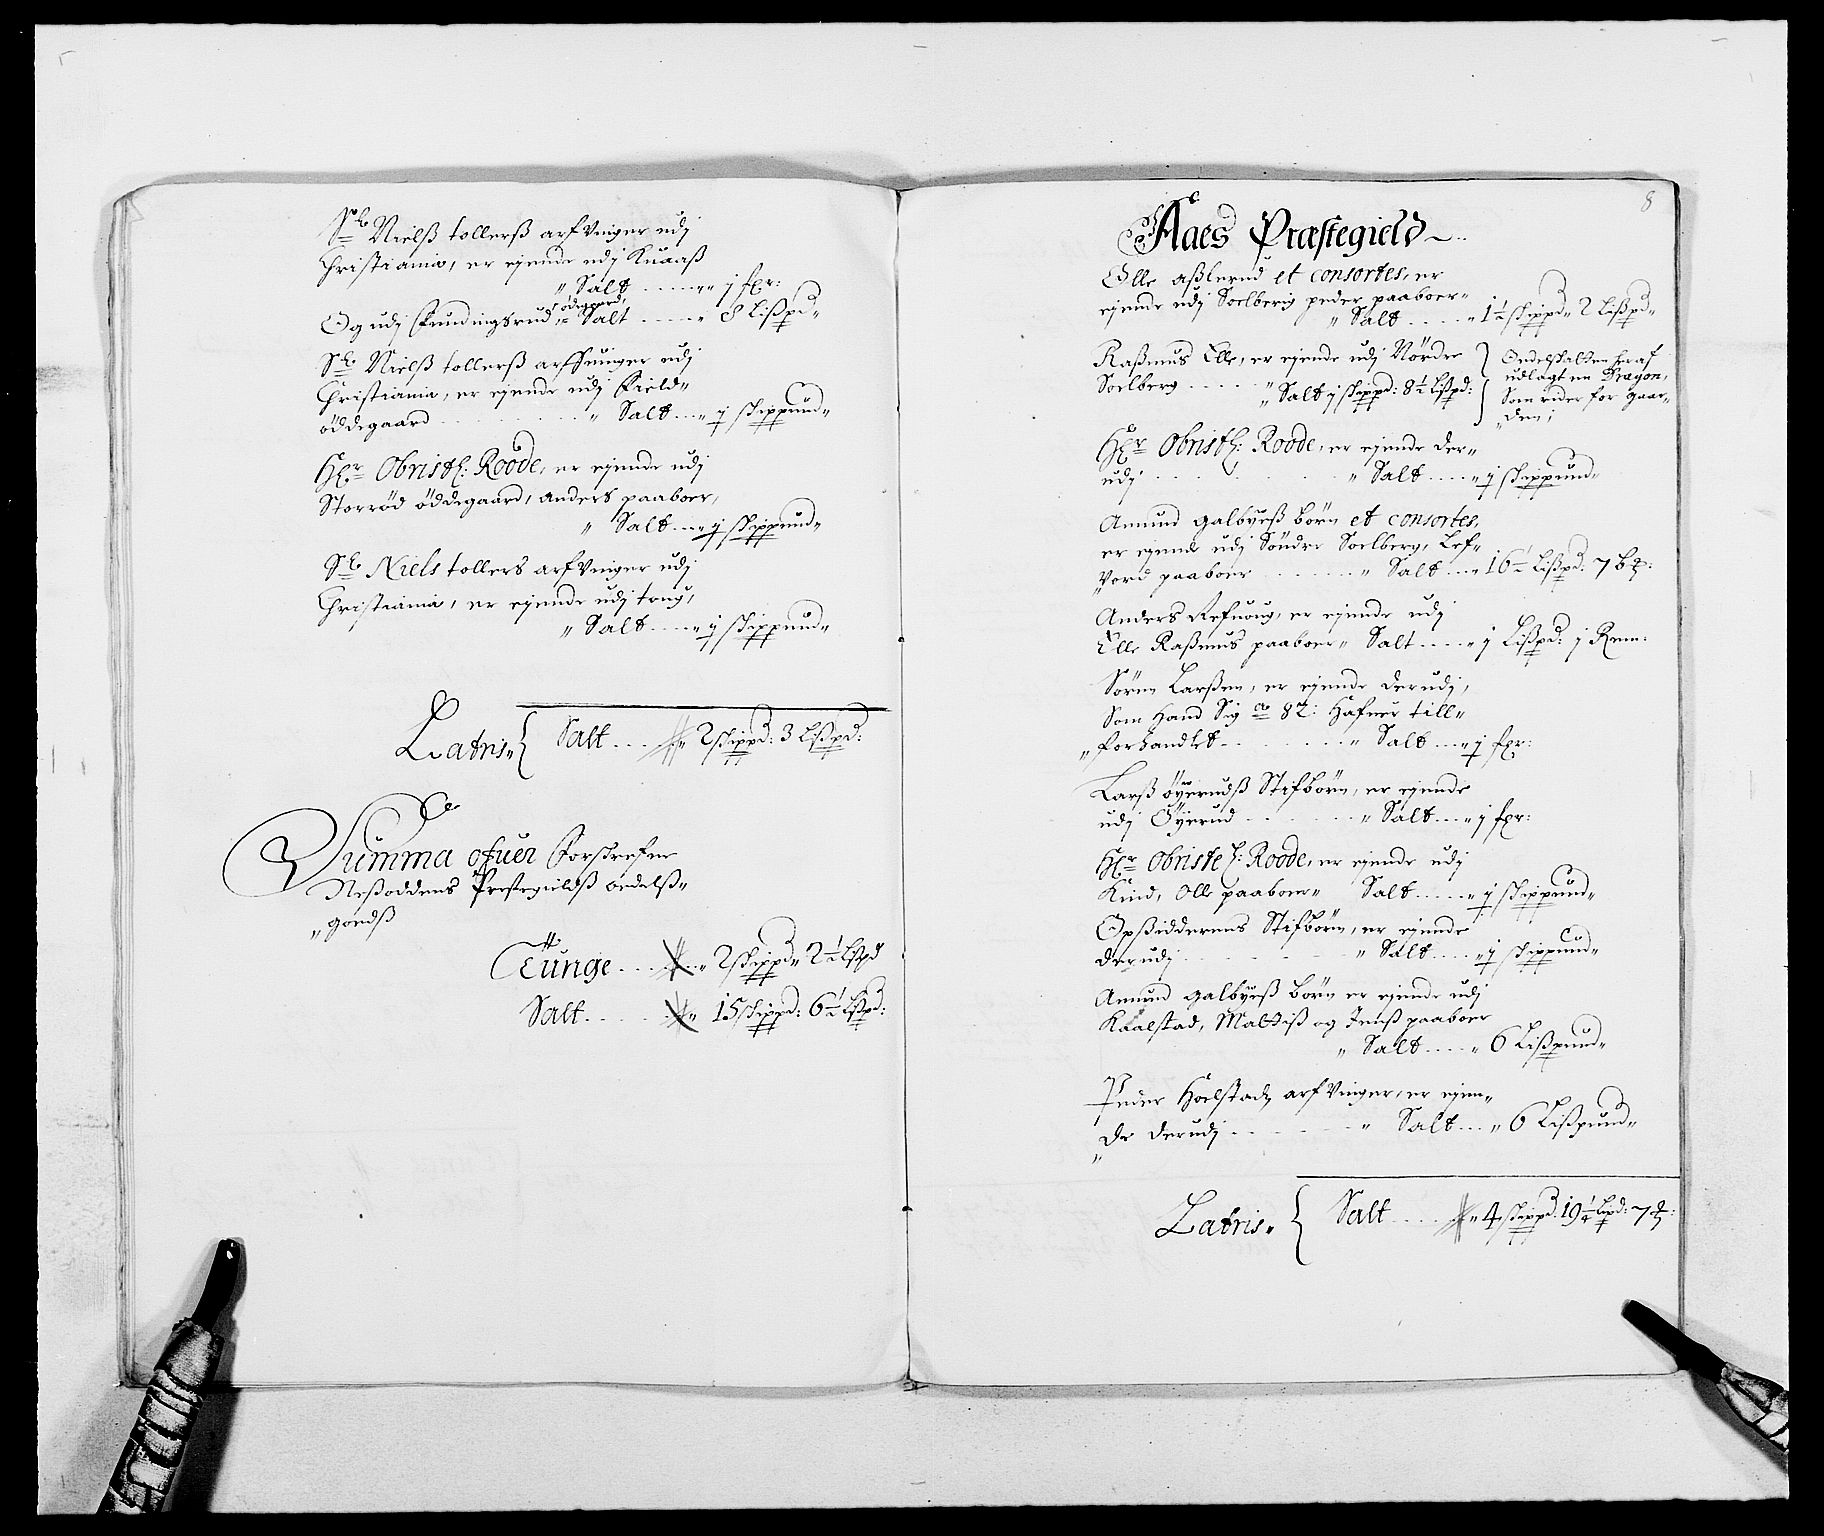 Sl: Nielß tollerß arfvinger udj
Christiania, er ejende udj Knaaß
" Salt ...... " j fxr:
ödegaard,
Og udj Fundingsrud " Salt ..... " 8 Lißpd"
Sl: Nielß tollerß arffuinger udj
Christiania, er ejende udj Field"
öddegaard ........ " Salt ... " j skippund"
Hr: Obristl: Roode, er ejende udj
Storröd öddegaard, Anders paaboer,
" Salt ... " j skippund"
Sl: Niels tollers arfvinger udj
Christiania, er ejende udj toug,
" Salt .... " j skippund"
Latris" { Salt ... " 2 skippd: 3 Lißpd:
Summa ofuer Forskrefne
Neßoddens Prestegieldß oedelß"
"godß
Tunge ...... " 2 skippd" 2 1/2 Lißpd
Salt ...... " 15 skippd: 6 1/2 Lißpd:
8
Aaes Præstegield
Olle aßlerud et consortes, er
ejende udj Soelberig peder paaboer"
" Salt ..... " 1 1/2 skippd" 2 Lißpd"
Raßmus Elle, er ejende udj Nördre
Soelberg ..... " Salt j skippd: 8 1/2 Lißpd:
Oedelskatten heraf
udlagt en Dragon,
Som rider for gaar"
"den;
Hr: Obristl: Roode, er ejende der"
udj ......... " Salt .... " j skippund"
Amund galbyeß börn et consortes,
er ejende udj Söndre Soelberg, Lef"
"vord paaboer ...... " Salt ... " 16 1/2 Lißpd: 7
Anders Refuoug, er ejende udj
Elle Raßmus paaboer" Salt .... " j Lißpd: j Rem:
Sören Larßen, er ejende derudj,
Som Hand Sig ao 82: Hafuer till"
"forhandlet ........ " Salt ... " j fxr:
Larß öyerudß Stifbörn, er ejende
udj Öyerud ....... " Salt ... " j fxr:
Hr: Obriste L: Roode, er ejende udj
Kind, Olle paaboer" Salt ..... " j skippund"
Opsidderens Stifbörn, er ejende
derudj ......... " Salt .... " j skippund"
Amund galbyeß börn er ejende udj
Kaalstad, Maltiß og Jenß paaboer
" Salt .... " 6 Lißpund"
Peder Hoelstadz arfvinger, er ejen"
"de derudj ....... " Salt ... " 6 Lißpund"
Latris" { Salt ..... " 4 skippd: 19 1/4 Lpd: 7